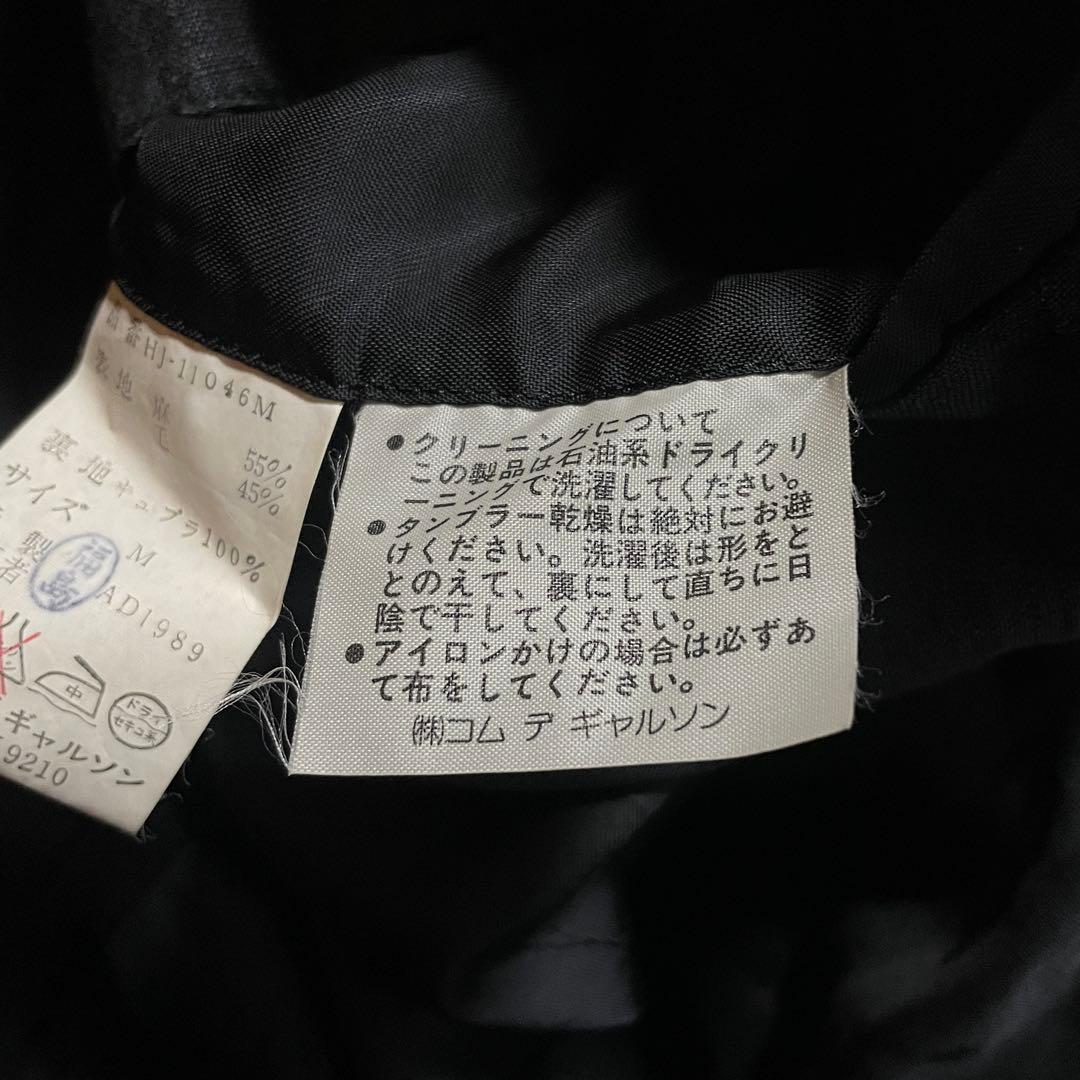 品番HJ-11046M
表地
55%
45%
裏地 キュプラ100%
サイズ M
福島
AD1989
中
ドライ
セキユ系
ギャルソン
9210
●クリーニングについて
この製品は石油系ドライクリ
ーニングで洗濯してください。
●タンブラー乾燥は絶対にお避
けください。洗濯後は形をと
とのえて、裏にして直ちに日
陰で干してください。
●アイロンかけの場合は必ずあ
て布をしてください。
㈱コム デ ギャルソン